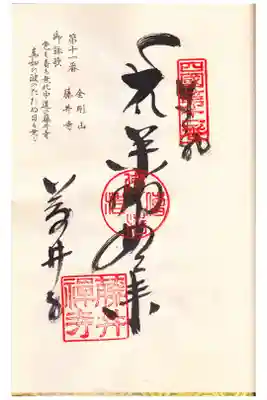 四國第十一番
奉納
藤井寺
藤井禪寺
第十一番 金剛山
藤井寺
御詠歌
色も香も無比中道の藤井寺
真如の波のたたぬ日も無し